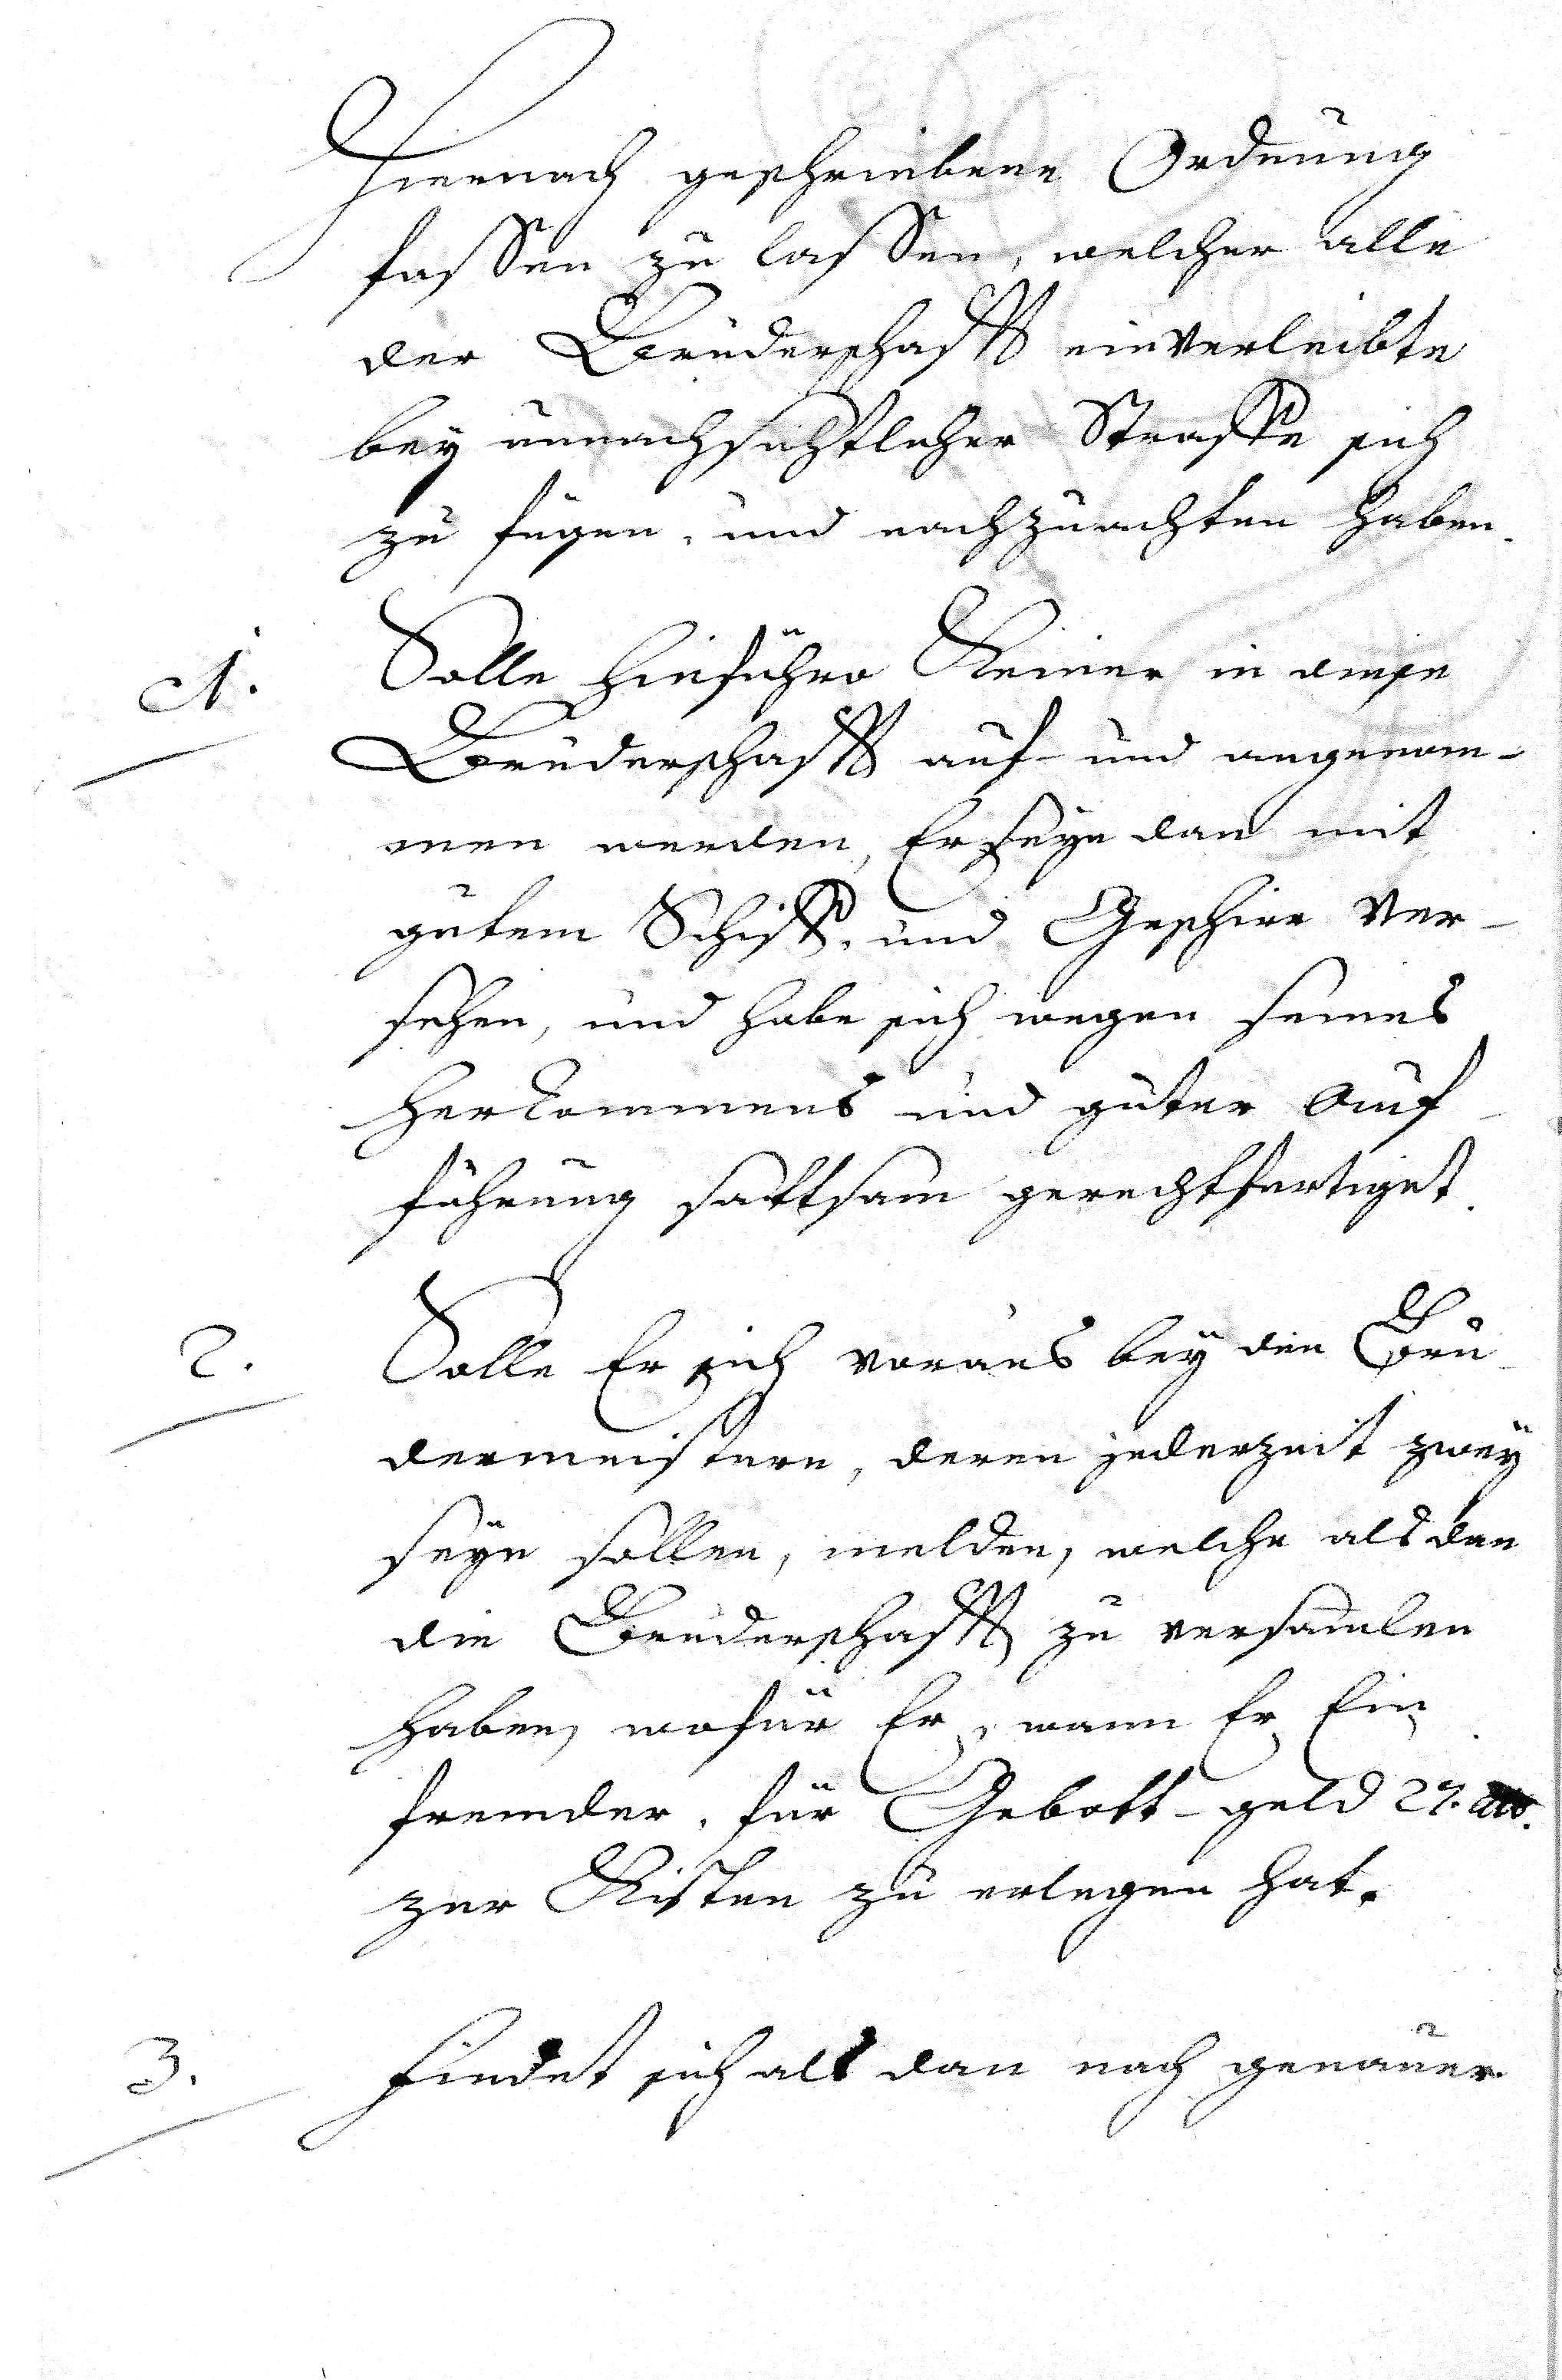 Hiernach geschriebene Ordnung
fassen zu lassen, welcher alle
der Bruderschafft einverleibte
bey unnachsichtlicher Straffe sich
zu fügen, und nachzuachten haben.
1. Solle hinführo Keiner in diese
Bruderschafft auf- und angenom-
men werden, Er seye dan mit
gutem Schiff, und Geschirr Ver-
sehen, und habe sich wegen seines
Herkommens und guter Auf-
führung sattsam gerechtfertiget.
2. Solle Er sich voraus bey den Bru-
dermeistern, deren jederzeit zwey
seyn sollen, melden, welche als dan
die Bruderschafft zu versamlen
haben, wofür Er, wann Er Ein
fremder, für Gebott-geld 24. alb.
zur Kisten zu erlegen hat.
3. Findet sich als dan nach genauer